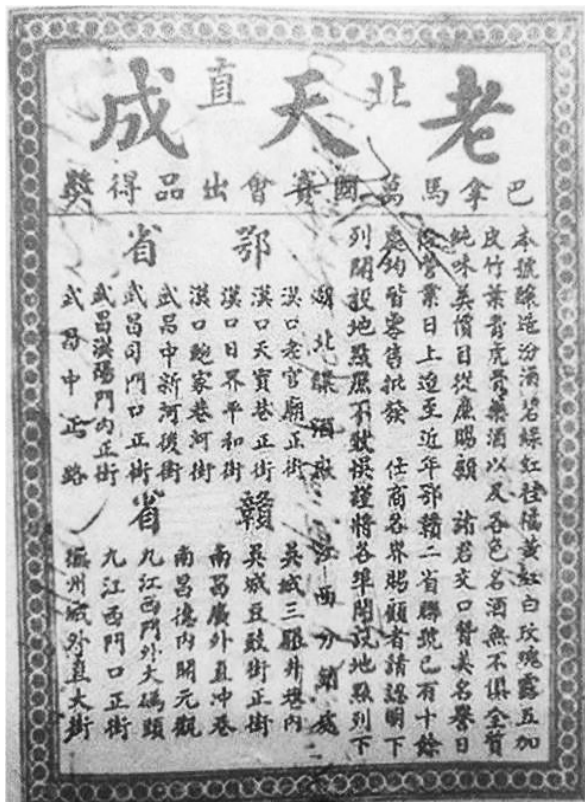 北直
老天成
巴拿馬萬國賽會出品得獎
本號釀造汾酒碧綠紅桂橘黃紅白玫瑰露五加
皮竹葉青虎骨藥酒以及各色名酒無不俱全質
純味美價目從廉賜顧 諸君交口美名譽日
營業日上迨至近年鄂贛二省聯號已有十餘
處鈞皆零售批發 仕商各界賜顧者請認明下
列開設地點庶不致悞謹將各埠開設地點列下
鄂省
湖北釀酒廠
漢口老官廟正街
漢口天寶巷正街
漢口日界平和街
漢口鮑家巷河街
武昌中新河後街
武昌司門口正街
武昌漢陽門內正街
武昌中正路
贛省
江西分銷處
吳城三眼井巷內
吳城豆豉街正街
南昌廣外直冲巷
南昌德內開元觀
九江西門外大碼頭
九江西門口正街
撫州城外直大街